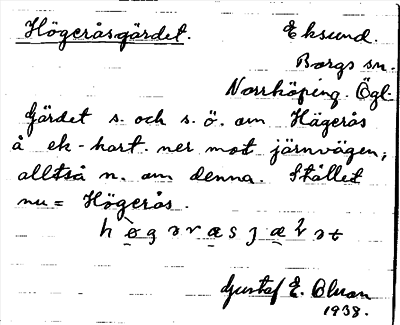 Högeråsgärdet. Eksund.
Borgs sn.
Norrköping. Ögl.
Gärdet s. och s. ö. om Hägerås
å ek-kart. ner mot järnvägen,
alltså n. om denna. Stället
nu = Högerås.
Gustaf E. Olson
1938.